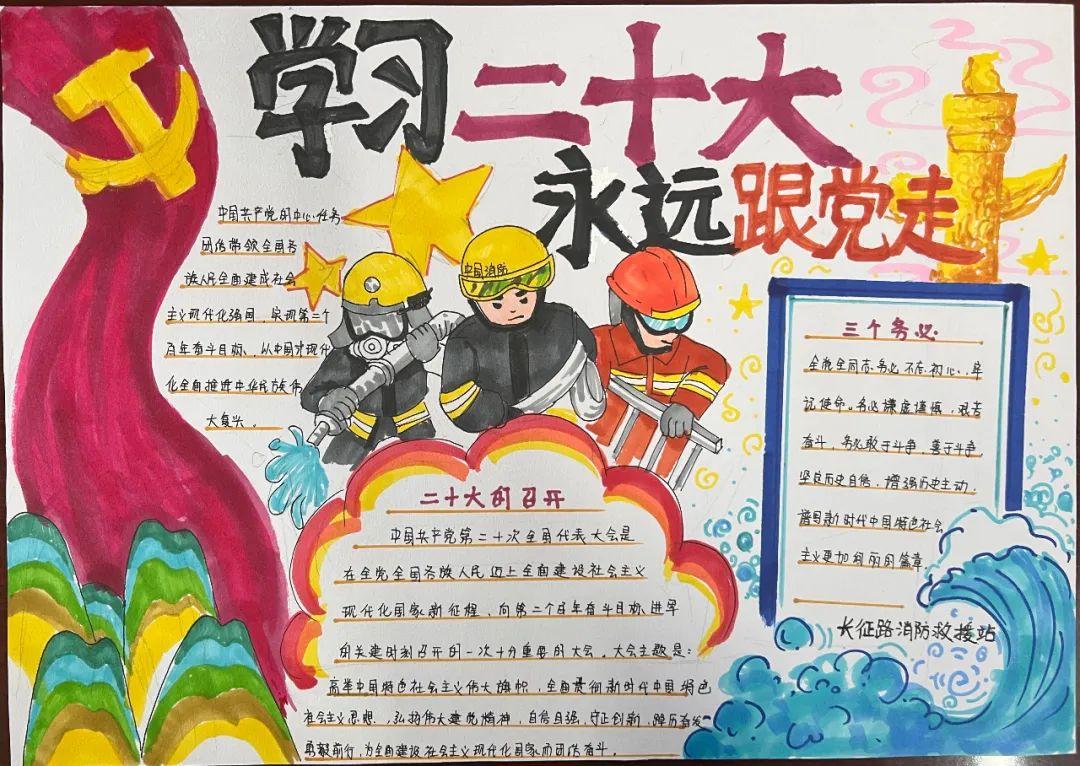 学习二十大
永远跟党走
中国共产党的中心任务
团结带领全国各
族人民全面建成社会
主义现代化强国、实现第二个
百年奋斗目标，以中国式现代
化全面推进中华民族伟
大复兴。
中国消防
三个务必
全党全同志务必不忘初心、牢
记使命。务必谦虚谨慎、艰苦
奋斗，务必敢于斗争、善于斗争，
坚定历史自信，增强历史主动，
谱写新时代中国特色社会
主义更加绚丽的篇章
二十大的召开
中国共产党第二十次全国代表大会是
在全党全国各族人民迈上全面建设社会主义
现代化国家新征程、向第二个百年奋斗目标进军
的关键时刻召开的一次十分重要的大会。大会主题是：
高举中国特色社会主义伟大旗帜，全面贯彻新时代中国特色
社会主义思想，弘扬伟大建党精神，自信自强、守正创新，踔厉奋发、
勇毅前行，为全面建设社会主义现代化国家而团结奋斗。
长征路消防救援站